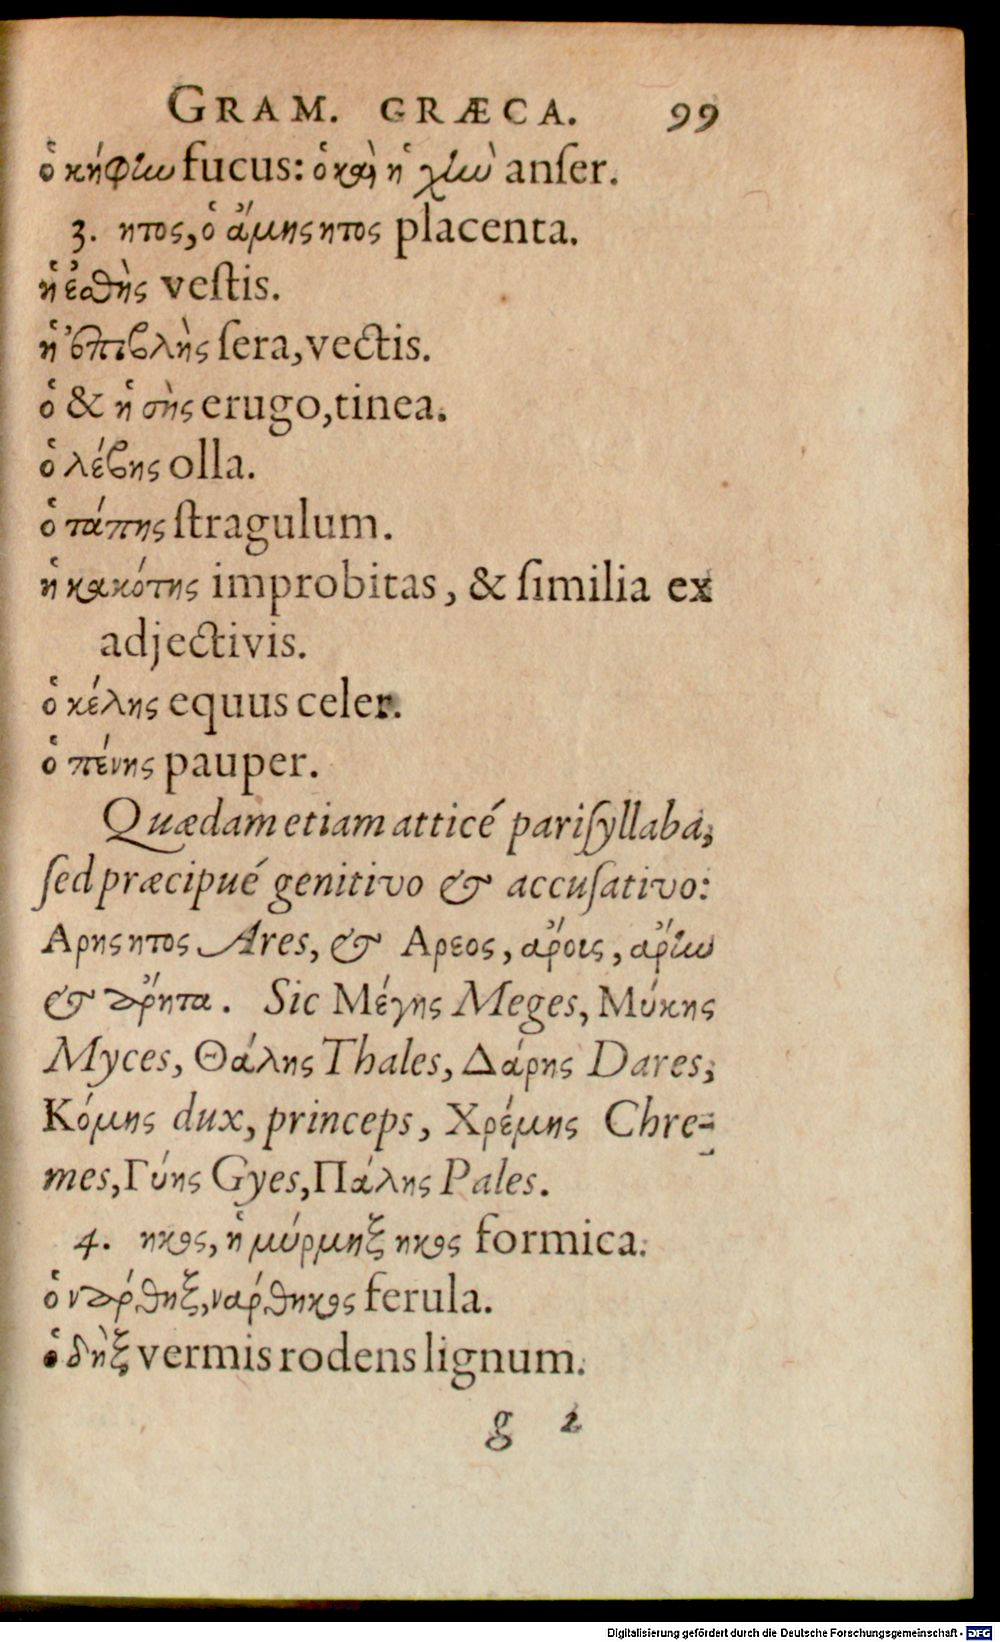 GRAM. GRÆCA. 99
ὁ κήφην fucus: ὁ καὶ ἡ χὴν anſer.
3. ητος, ὁ ἄμης ητος placenta.
ἡ ἐσθὴς veſtis.
ἡ ἐπιβλὴς ſera, vectis.
ὁ & ἡ σὴς erugo, tinea.
ὁ λέβης olla.
ὁ τάπης ſtragulum.
ἡ κακότης improbitas, & ſimilia ex
adjectivis.
ὁ κέλης equus celer.
ὁ πένης pauper.
Quædam etiam atticé pariſyllaba,
ſed præcipué genitivo & accuſativo:
Αρης ητος Ares, & Αρεος, ἄροις, ἄρην
& ἄρητα. Sic Μέγης Meges, Μύκης
Myces, Θάλης Thales, Δάρης Dares,
Κόμης dux, princeps, Χρέμης Chre-
mes, Γύης Gyes, Πάλης Pales.
4. ηκος, ἡ μύρμηξ ηκος formica.
ὁ νάρθηξ, νάρθηκος ferula.
ὁ δὴξ vermis rodens lignum.
g 2
Digitalisierung gefördert durch die Deutsche Forschungsgemeinschaft - DFG